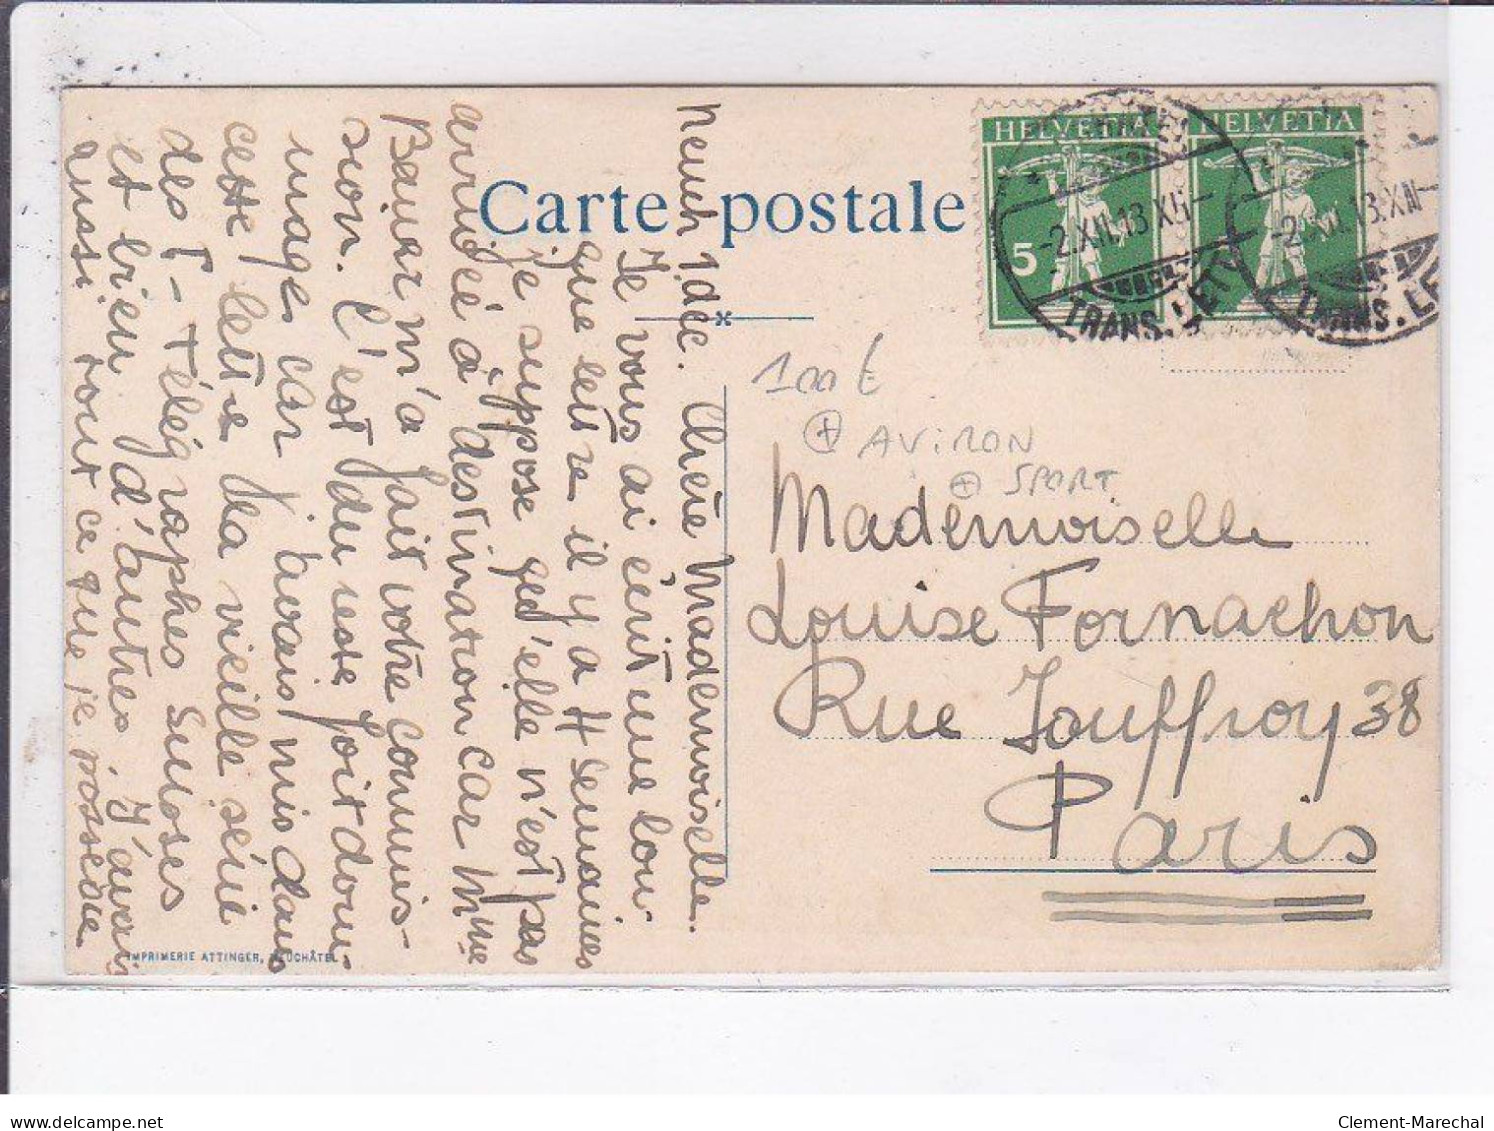 Carte postale
HELVETIA
HELVETIA
5
-2.XII.13.XII-
-2.XII.13.XII-
TRANS. LET
TRANS. LE
100 €
⊕ AVIRON
⊕ SPORT
Mademoiselle
Louise Fornachon
Rue Jouffroy 38
Paris
Neuch 1 déc. Chère Mademoiselle.
Je vous ai écrit une lon-
gue lettre il y a 4 semaines
je suppose qu'elle n'est pas
arrivée à destination car Mme
Bauer m'a fait votre commis-
sion. C'est du reste fort dom-
mage car j'avais mis dans
cette lettre ma vieille série
des P - Télégraphes Suisses
et bien d'autres. J'avais
aussi tout ce que je possède
IMPRIMERIE ATTINGER, NEUCHÂTEL
Clement-Marechal
delcampe.net